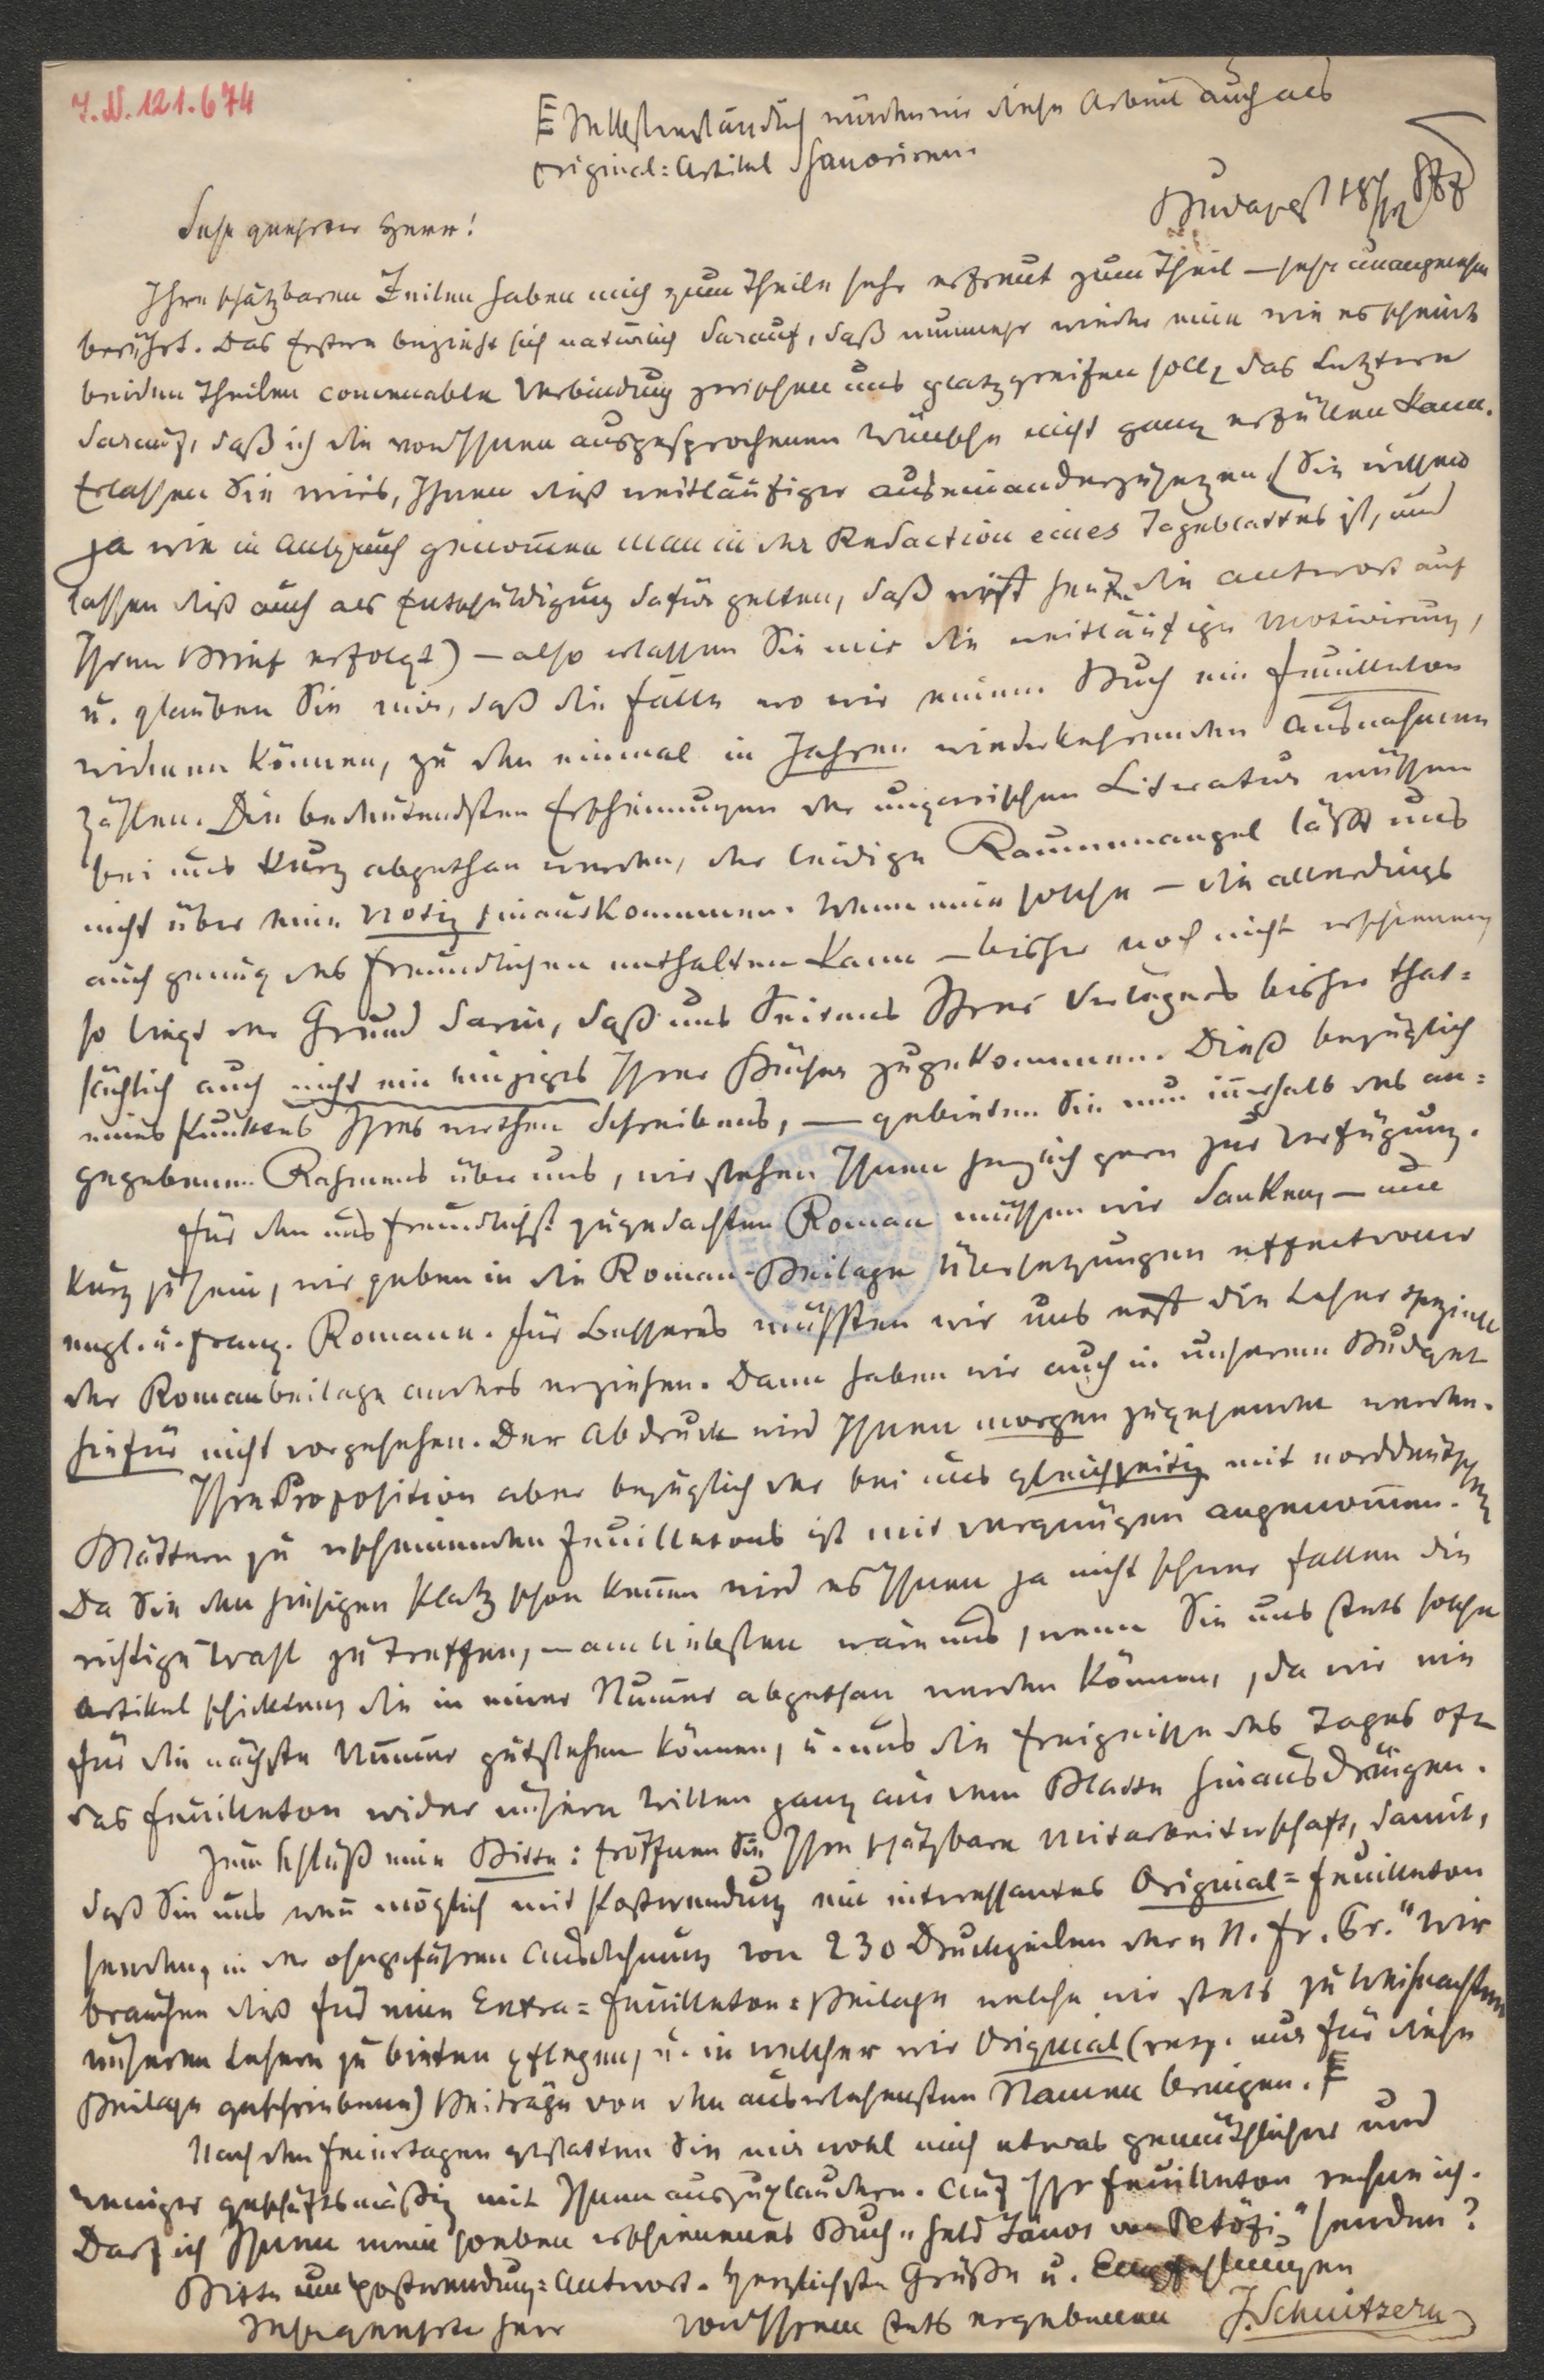 I.N. 121.674
Selbstverständlich würden wir diese Arbeit auch als
Original-Artikel honoriren.
Budapest 18/12 877
Sehr geehrter Herr!
Ihre schätzbaren Zeilen haben mich zum Theile sehr erfreut zum Theil – sehr unangenehm
berührt. Das Erstere bezieht sich natürlich darauf, daß nunmehr wieder eine wie es scheint
beiden Theilen convenable Verbindung zwischen uns platzgreifen soll, das Letztere
darauf, daß ich die von Ihnen ausgesprochenen Wünsche nicht ganz erfüllen kann.
Erlassen Sie mirs, Ihnen dieß weitläufiger auseinanderzusetzen (Sie wissen
ja wie in Anspruch genom̄en man in der Redaction eines Tageblattes ist, und
lassen dieß auch als Entschuldigung dafür gelten, daß erst heute die Antwort auf
Ihren Brief erfolgt) – also erlassen Sie mir die weitläufige Motivirung,
u. glauben Sie mir, daß die Fälle wo wir einem Buch ein Feuilleton
widmen können, zu den einmal in Jahren wiederkehrenden Ausnahmen
zählen. Die bedeutendsten Erscheinungen der ungarischen Literatur müssen
bei uns kurz abgethan werden, der leidige Raummangel läßt uns
nicht über eine Notiz hinauskommen. Wenn eine solche – die allerdings
auch genug des Freundlichen enthalten kann – bisher noch nicht erschienen,
so liegt der Grund darin, daß uns Seitens Ihres Verlegers bisher that-
sächlich auch nicht ein einziges Ihrer Bücher zugekommen. Dieß bezüglich
eines Punktes Ihres werthen Schreibens, – gebieten Sie nun in̄erhalb des an-
gegebenen Rahmens über uns, wir stehen Ihnen herzlich gern zur Verfügung.
Für den uns freundlichst zugedachten Roman müssen wir danken, – um
kurz zu sein, wir geben in die Roman-Beilage Übersetzungen effectvoller
engl. u. franz. Romane. Für Besseres müßten wir uns erst die Leser speziell
der Romanbeilage anders erziehen. Dann haben wir auch in unserem Budget
hiefür nicht vorgesehen. Der Abdruck wird Ihnen morgen zugesendet werden.
Ihre Proposition aber bezüglich der bei uns gleichzeitig mit norddeutschen
Blättern zu erscheinenden Feuilletons ist mit Vergnügen angenom̄en.
Da Sie den hiesigen Platz schon ken̄en wird es Ihnen ja nicht schwer fallen die
richtige Wahl zu treffen, – am liebsten wäre uns, wenn Sie uns stets solche
Artikel schickten, die in einer Num̄er abgethan werden können, da wir nie
für die nächste Num̄er gutstehen können, u. uns die Ereignisse des Tages oft
das Feuilleton wider unsern Willen ganz aus dem Blatte hinausdrängen.
Zum Schluß eine Bitte: Eröffnen Sie Ihre schätzbare Mitarbeiterschaft, damit,
daß Sie uns wen̄ möglich mit Postwendung ein interessantes Original-Feuilleton
senden, in der ohngefähren Ausdehnung von 230 Druckzeilen der „N. Fr. Pr." Wir
brauchen dieß für eine Extra-Feuilleton-Beilage welche wir stets zu Weihnachten
unseren Lesern zu bieten pflegen, u. in welcher wir Original (resp. nur für diese
Beilage geschriebene) Beiträge von den auserlesensten Namen bringen.
Nach den Feiertagen gestatten Sie mir wohl mich etwas gemüthlicher und
weniger geschäftsmäßig mit Ihnen auszuplaudern. Auf Ihr Feuilleton rechne ich.
Darf ich Ihnen mein soeben erschienenes Buch „Held János von Petöfi" senden?
Bitte um postwendung-Antwort. Herzlichste Grüße u. Empfehlungen
Sehr geehrter Herr von Ihrem stets ergebenen J. Schnitzer